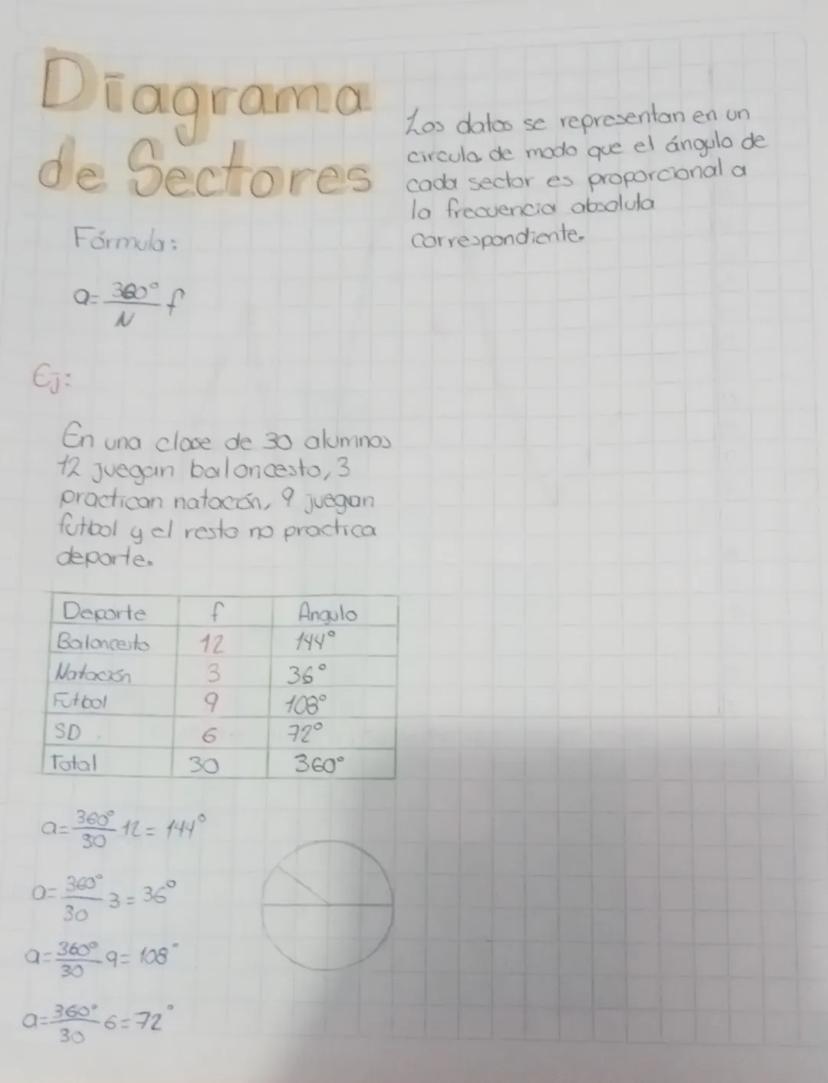 Diagrama
de Sectores
Los datos se representan en un
circulo de modo que el ángulo de
cada sector es proporcional a
la frecuencia absoluta
correspondiente.
Fórmula:
a= 360°/N f
Ej:
En una clase de 30 alumnos
12 juegan baloncesto, 3
practican natación, 9 juegan
futbol y el resto no practica
deporte.
Deporte f Angulo
Baloncesto 12 144°
Natación 3 36°
Futbol 9 108°
SD. 6 72°
Total 30 360°
a= 360°/30 12 = 144°
a= 360°/30 3 = 36°
a= 360°/30 9 = 108°
a= 360°/30 6 = 72°